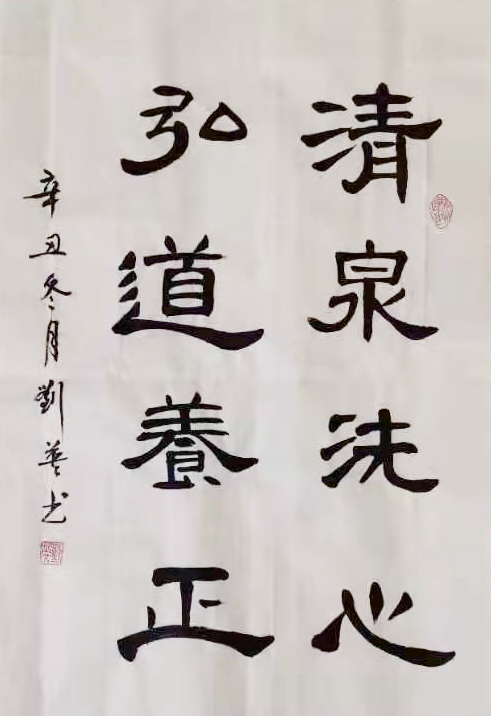 清泉洗心
弘道養正
辛丑冬月劉英书